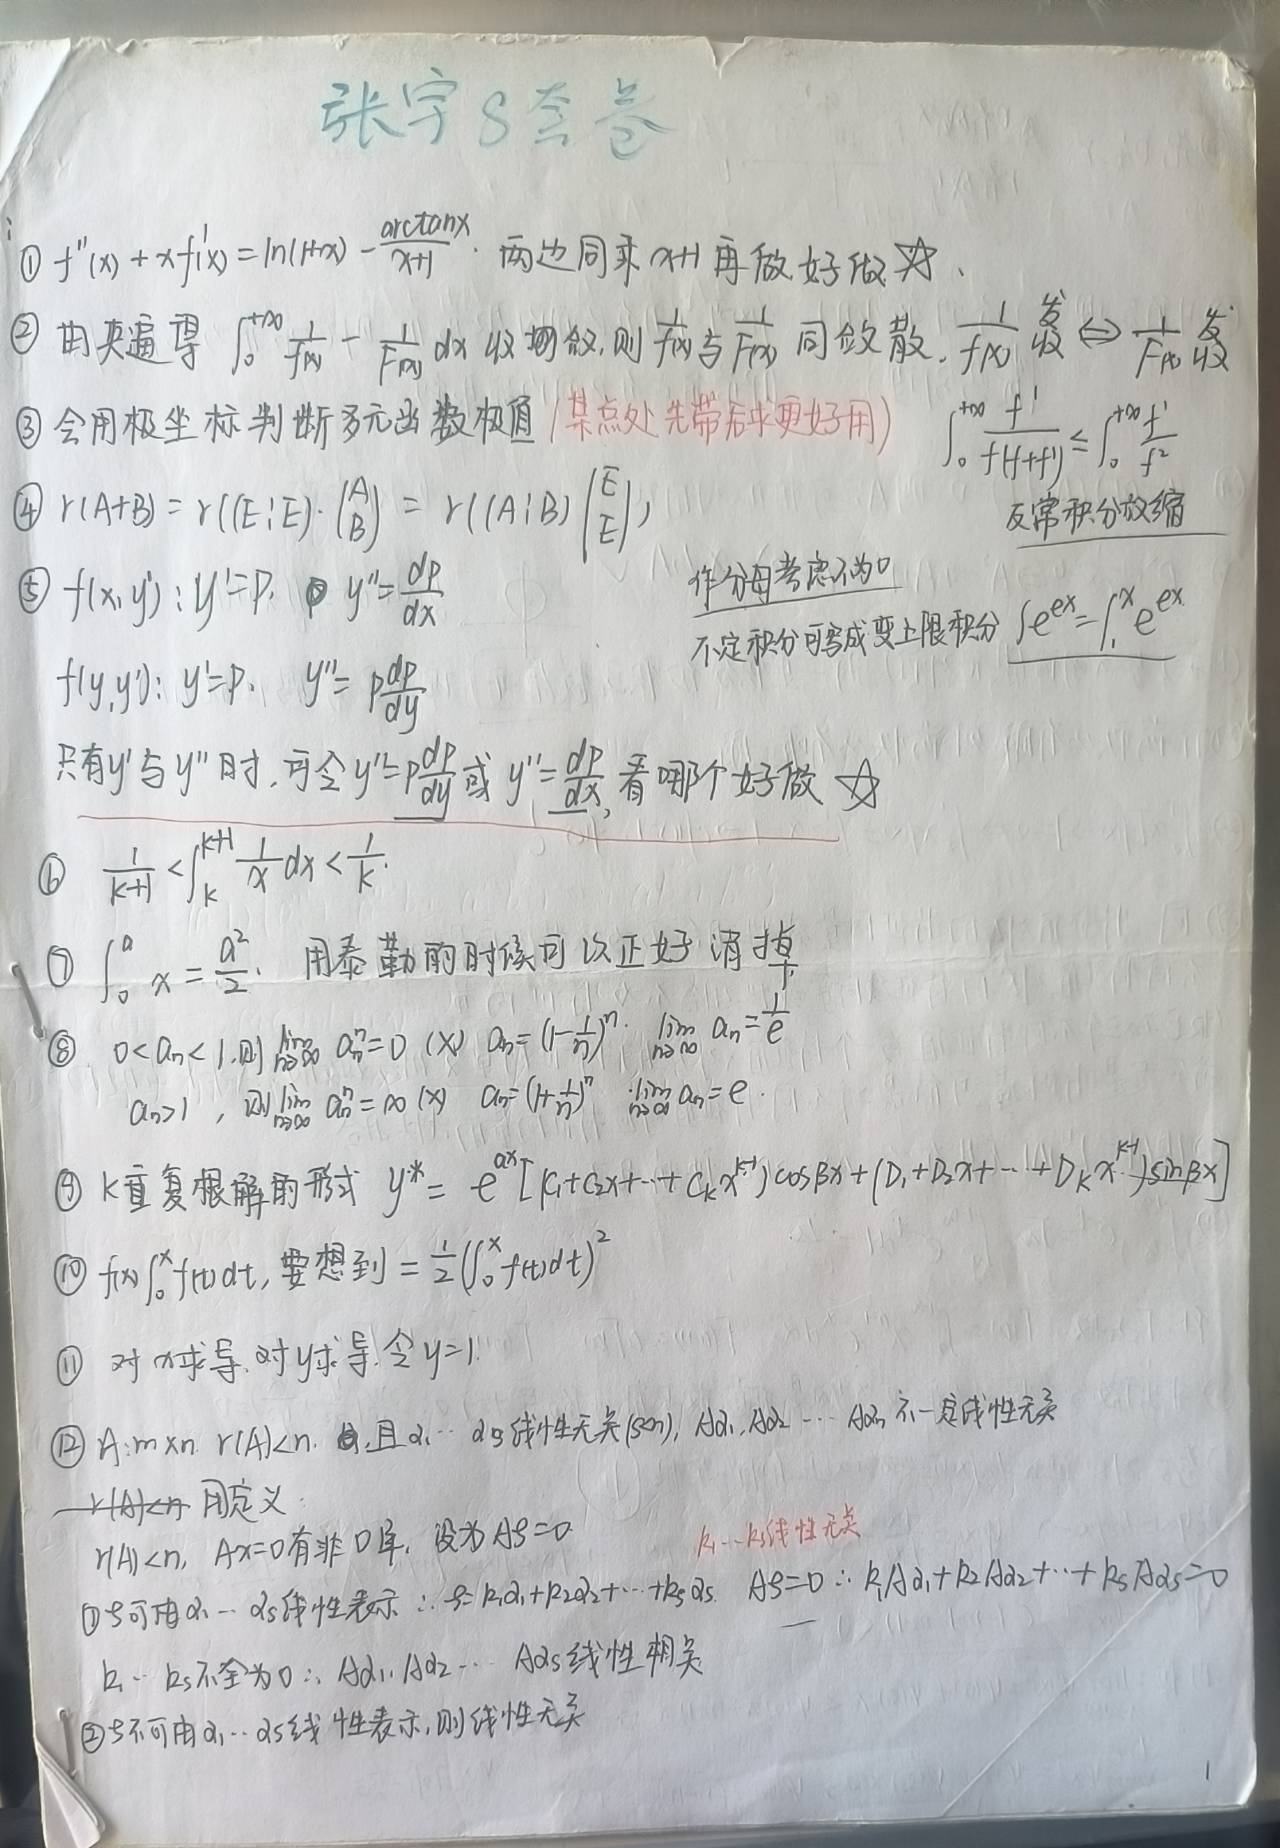 张宇8套卷
① f''(x) + xf'(x) = ln(1+x) - arctanx/(x+1). 两边同乘 x+1 再做好做 ☆.
② 由夹逼得 ∫₀^{+∞} 1/f(x) - 1/F(x) dx 收敛,则 1/f(x) 与 1/F(x) 同敛散. 1/f(x) 发收 ⇔ 1/F(x) 发收
③ 会用极坐标判断多元函数极值(某点处先带后求更好用)
∫₀^{+∞} f'/(f(f+f')) ≤ ∫₀^{+∞} f'/f²
反常积分放缩
④ r(A+B) = r((E¦E)·(A B)) = r((A¦B)(E E))
⑤ f(x,y'): y'=P. y''=dp/dx
作分母考虑不为0
不定积分可写成变上限积分 ∫e^{ex} = ∫₁^x e^{ex}
f(y,y'): y'=P. y''=p dp/dy
只有y'与y''时,可令y''=p dp/dy 或 y''=dp/dx, 看哪个好做 ☆
⑥ 1/(k+1) < ∫_k^{k+1} 1/x dx < 1/k.
⑦ ∫₀^a x = a²/2. 用泰勒的时候可以正好消掉
⑧ 0<aₙ<1,则 lim n→∞ aₙⁿ=0 (×) aₙ=(1-1/n)ⁿ. lim n→∞ aₙ=1/e
aₙ>1, 则 lim n→∞ aₙⁿ=∞ (×) aₙ=(1+1/n)ⁿ lim n→∞ aₙ=e.
⑨ K重复根解的形式 y* = e^{αx}[(C₁+C₂x+…+C_k x^{k-1})cosβx+(D₁+D₂x+…+D_k x^{k-1})sinβx]
⑩ f(x)∫₀^x f(t)dt, 要想到 = 1/2(∫₀^x f(t)dt)²
⑪ 对x求导,对y求导.令y=1.
⑫ A:m×n r(A)<n. 且α₁…αs线性无关(s≤n), Aα₁,Aα₂…Aαs 不一定线性无关
r(A)<n 用定义.
r(A)<n, Ax=0有非0解, 设为Aξ=0
k₁…ks线性无关
①ξ可由α₁…αs线性表示 ∴ ξ=k₁α₁+k₂α₂+…+ksαs. Aξ=0 ∴ k₁Aα₁+k₂Aα₂+…+ksAαs=0
k₁…ks不全为0 ∴ Aα₁,Aα₂…Aαs线性相关
②ξ不可由α₁…αs线性表示,则线性无关
1